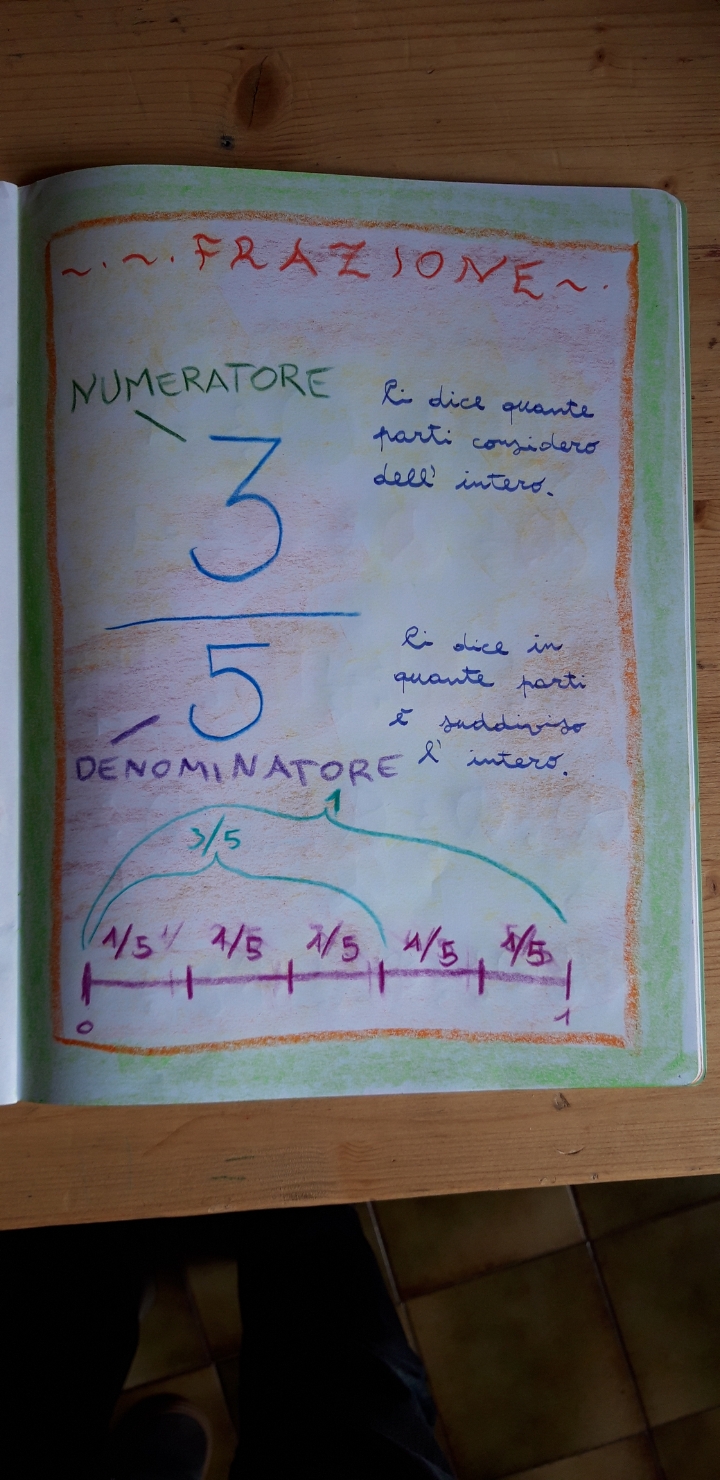 ~.~. FRAZIONE ~.
NUMERATORE
3
Ci dice quante
parti considero
dell' intero.
5
DENOMINATORE
Ci dice in
quante parti
è suddiviso
l' intero.
1
3/5
1/5 1/5 1/5 1/5 1/5
0 1